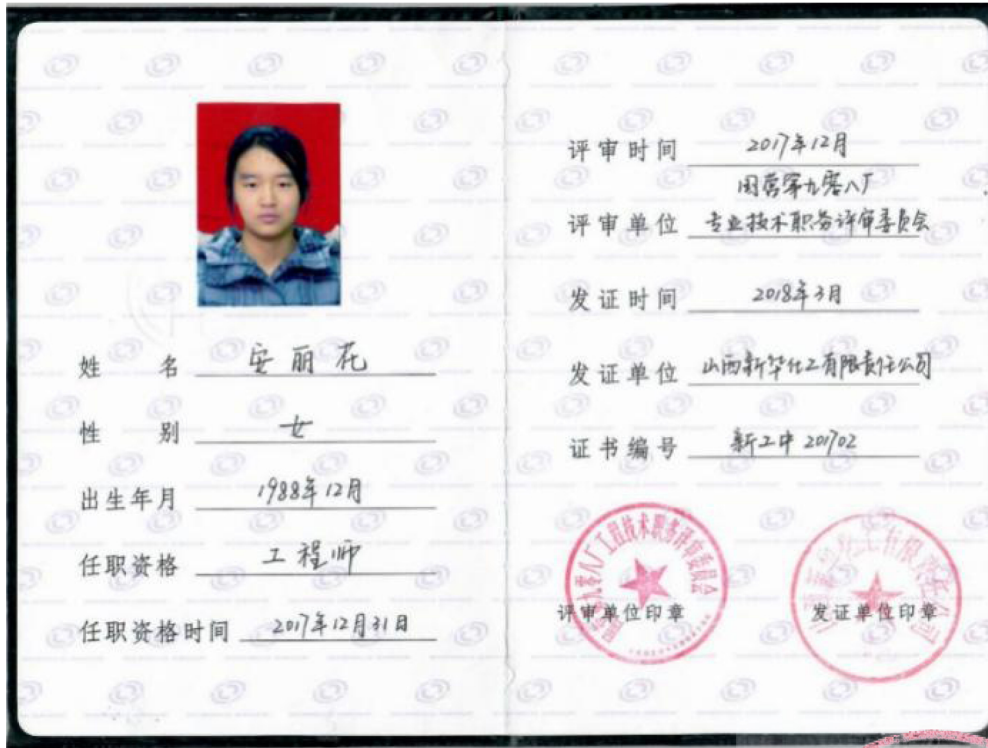 姓名 安丽花
性别 女
出生年月 1988年12月
任职资格 工程师
任职资格时间 2017年12月31日
评审时间 2017年12月
国营第九零八厂
评审单位 专业技术职务评审委员会
发证时间 2018年3月
发证单位 山西新华化工有限责任公司
证书编号 新工中201702
国营第九零八厂工程技术职务评审委员会
评审单位印章
山西新华化工有限责任公司
发证单位印章